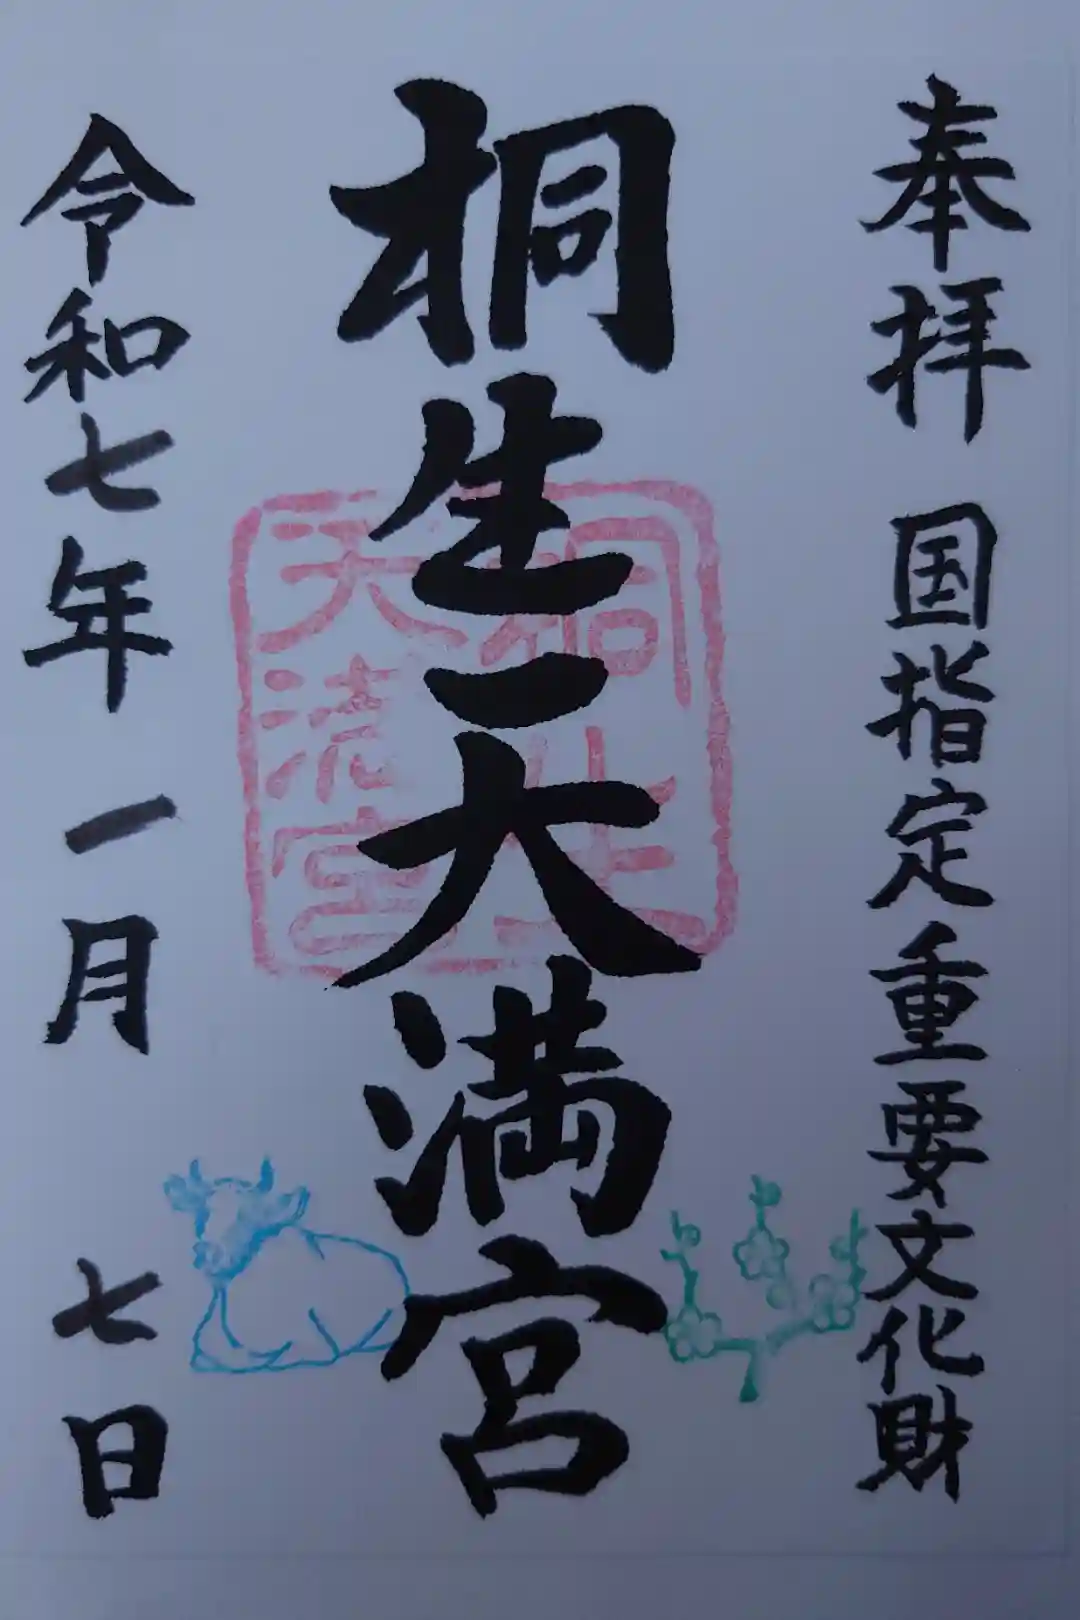 奉拝 国指定重要文化財
桐生天満宮
桐生
天満宮
令和七年一月七日